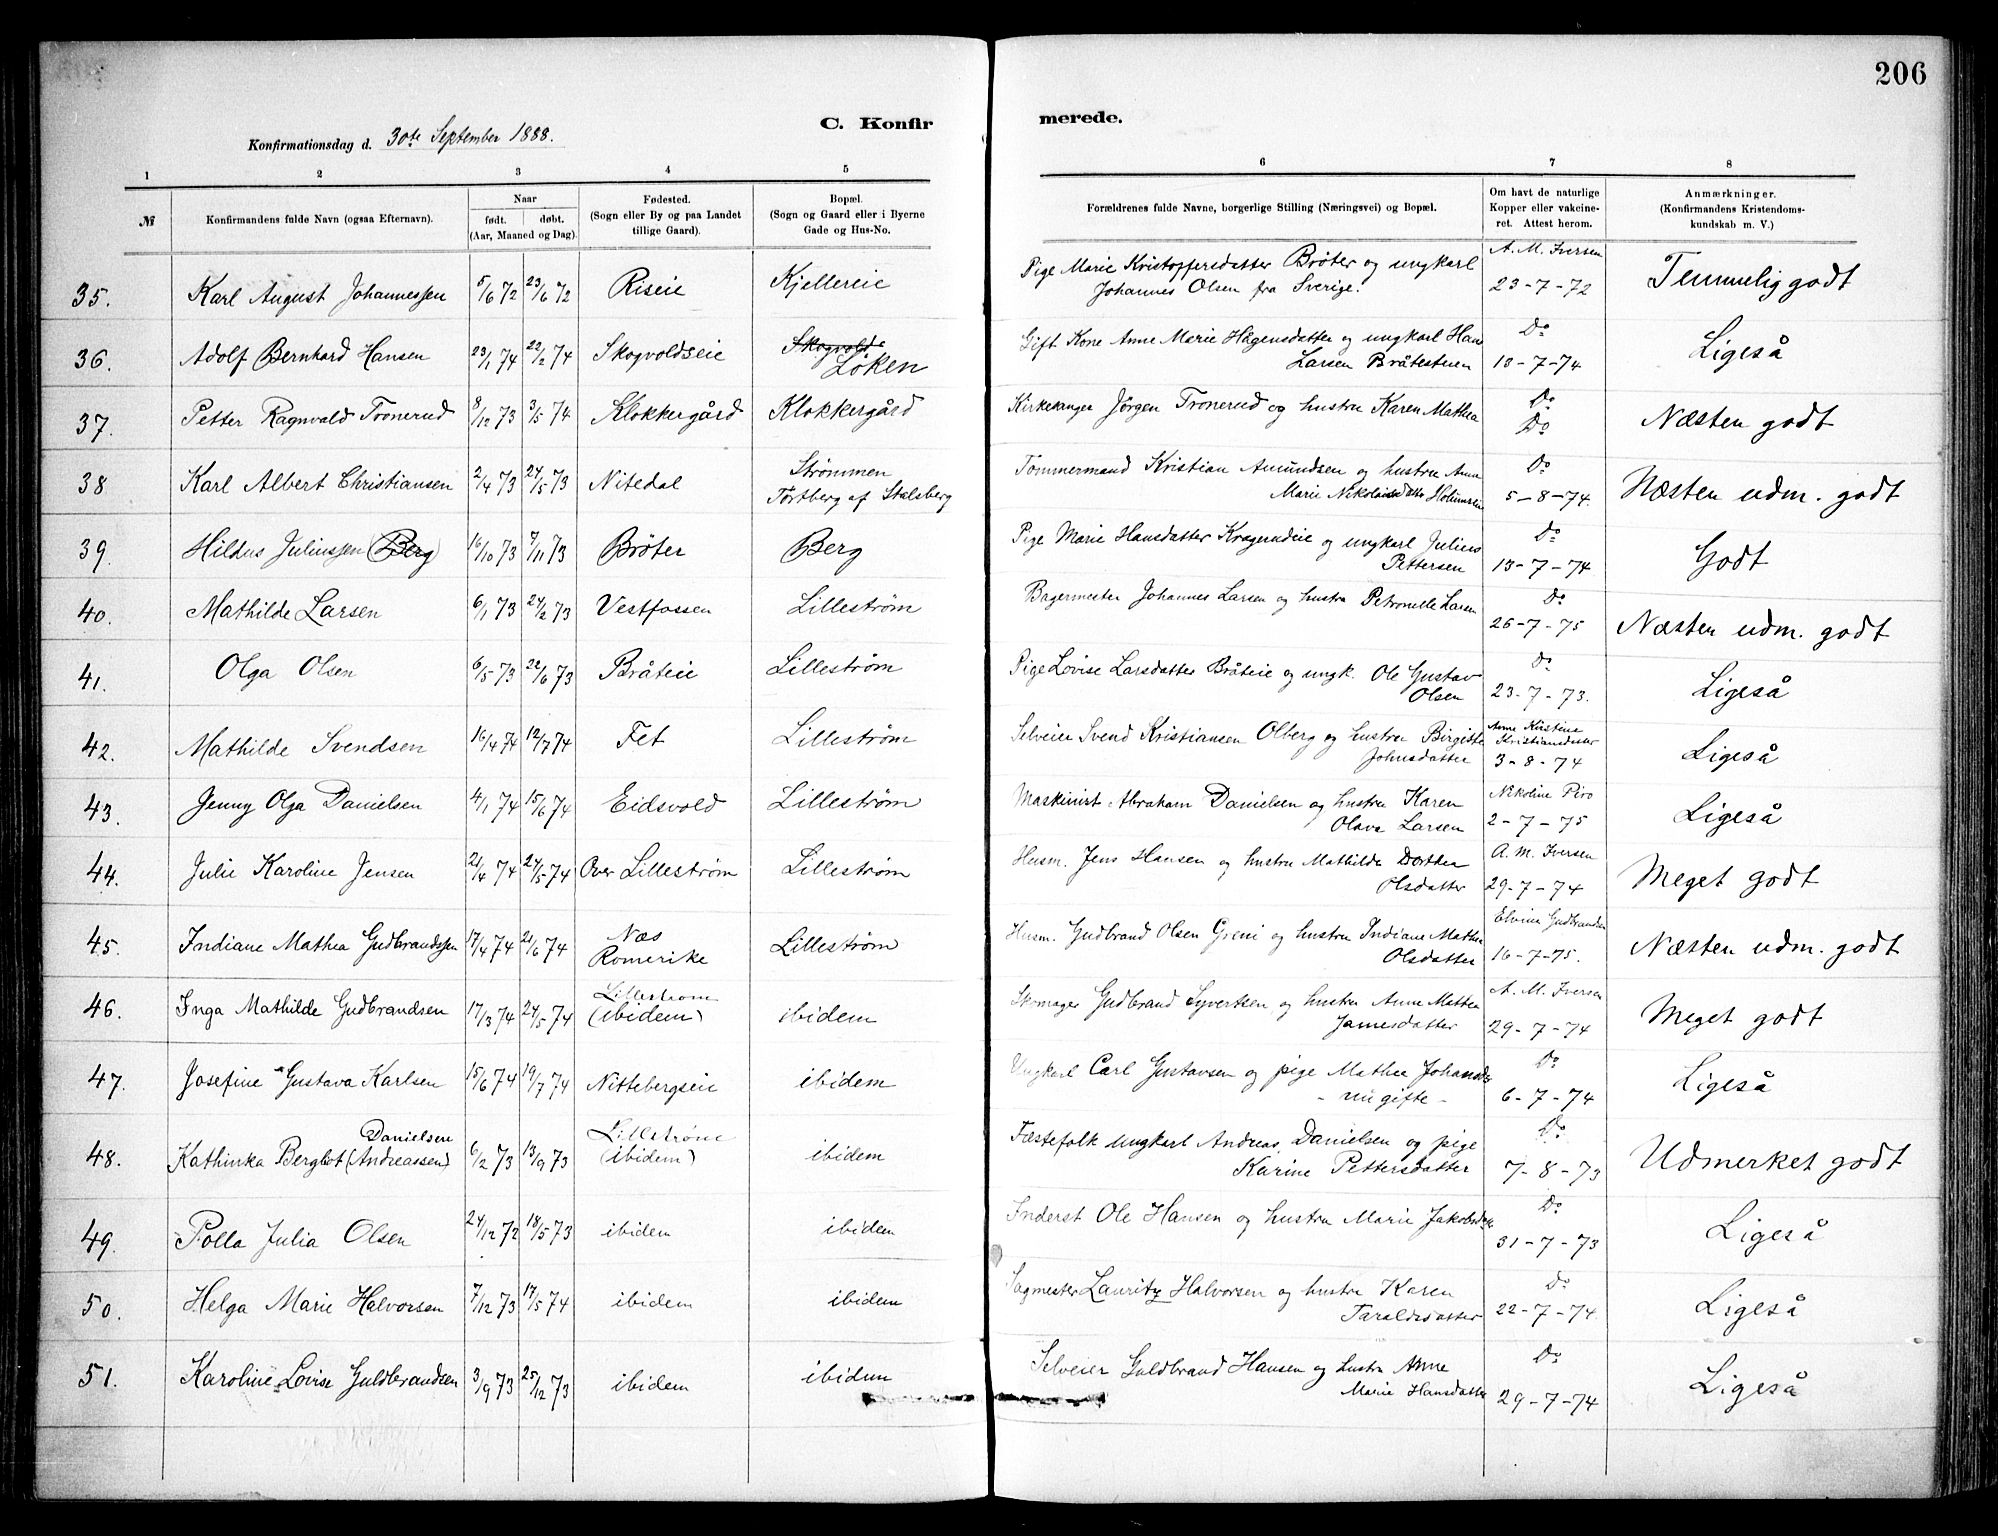 206
C. Konfir merede.
Konfirmationsdag d. 30te September 1888.
1 2 3 4 5 6 7 8
№ Konfirmandens fulde Navn (ogsaa Efternavn). Naar født. døbt. (Aar, Maaned og Dag). Fødested. (Sogn eller By og paa Landet tillige Gaard). Bopæl. (Sogn og Gaard eller i Byerne Gade og Hus-No. Forældrenes fulde Navne, borgerlige Stilling (Næringsvei) og Bopæl. Om havt de naturlige Kopper eller vakcineret. Attest herom. Anmærkninger. (Konfirmandens Kristendomskundskab m. V.)
35. Karl August Johannessen 5/6 72 23/6 72 Riseie Kjellereie Pige Marie Kristoffersdatter Brøter og ungkarl A. M. Iversen Temmelig godt
Johannes Olsen fra Sverige. 23-7-72
36. Adolf Bernhard Hansen 23/1 74 22/2 74 Skogvoldseie Skogvolds Gift Kone Anne Marie Hågensdatter og ungkarl Hans Do Ligeså
Løken Larsen Bråtestuen 10-7-74
37. Petter Ragnvald Tronerud 8/12 73 3/5 74 Klokkergård Klokkergård Kirkesanger Jörgen Tronerud og hustru Karen Mathea Do Næsten godt
Do
38 Karl Albert Christiansen 2/4 73 24/5 73 Nitedal Strømmen Tømmermand Kristian Amundsen og hustru Anne Do Næsten udm. godt
Tortberg af Stalsberg Marie Nikolaisdatter 5-8-74.
39. Hildus Juliussen (Berg) 16/10 73 7/11 73 Brøter Berg Pige Marie Hansdatter Kragerudeie og ungkarl Julius Do Godt
Pettersen 13-7-74
40. Mathilde Larsen 6/1 73 24/2 73 Vestfossen Lillestrøm Bagermester Johannes Larsen og hustru Petronelle Larsen Do Næsten udm. godt
26-7-75
41. Olga Olsen 6/5 73 22/6 73 Bråteie Lillestrøm Pige Lovise Larsdatter Bråteie og ungk. Ole Gustav Do Ligeså
Olsen 23-7-73.
42. Mathilde Svendsen 16/4 74 12/7 74 Fet Lillestrøm Selveier Svend Kristiansen Olberg og hustru Birgitte Anne Kristine Ligeså
Johnsdatter Kristiansdatter
3-8-74
43. Jenny Olga Danielsen 4/1 74 15/6 74 Eidsvold Lillestrøm Maskinist Abraham Danielsen og hustru Karen Nikoline Piro Ligeså
Olava Larsen 2-7-75
44. Julie Karoline Jensen 21/4 74 24/5 74 Over Lillestrøm Lillestrøm Husm. Jens Hansen og hustru Mathilde Dorthea A. M. Iversen Meget godt
Olsdatter 29-7-74
45. Indiane Mathea Gudbrandssen 17/4 74 21/6 74 Næs Lillestrøm Husm. Gudbrand Olsen Greni og hustru Indiane Mathea Elvine Gudbrandsen Næsten udm. godt
Romerike Olsdatter 16-7-75.
46. Inga Mathilde Gudbrandsen 17/3 74 24/5 74 Lillestrøm ibidem Skomager Gudbrand Syvertsen og hustru Anne Mathea A. M. Iversen Meget godt
(ibidem) Jamesdatter 29-7-74
47. Josefine Gustava Karlsen 15/6 74 19/7 74 Nittebergseie ibidem Ungkarl Carl Gustavsen og pige Mathea Johansdr Do Ligeså
- nu gifte - 6-7-74
48. Kathinka Bergliot (Andreassen) Danielsen 6/2 73 13/9 73 Lillestrøm (ibidem) ibidem Fæstefolk ungkarl Andreas Danielsen og pige Do Udmerket godt
Karine Pettersdatter 7-8-73
49. Polla Julia Olsen 24/12 72 18/5 73 ibidem ibidem Inderst Ole Hansen og hustru Marie Jakobsdtr Do Ligeså
31-7-73
50. Helga Marie Halvorsen 7/12 73 17/5 74 ibidem ibidem Sagmester Lauritz Halvorsen og hustru Karen Do Ligeså
Taraldsdatter 22-7-74.
51. Karoline Lovise Guldbrandsen 3/9 73 25/12 73 ibidem ibidem Selveier Guldbrand Hansen og hustru Anne Do Ligeså
Marie Hansdatter 29-7-74